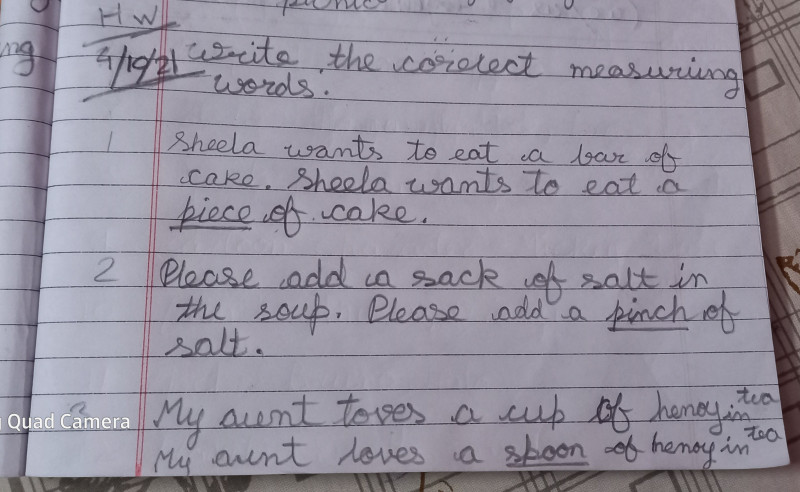 H W
4/10/21 write the corelect measuring
words.
1 Sheela wants to eat a bar of
cake. Sheela wants to eat a
piece of cake.
2 Please add a sack of salt in
the soup. Please add a pinch of
salt.
3 My aunt loves a cup of henoy in tea
My aunt loves a spoon of henoy in tea
ng
Quad Camera